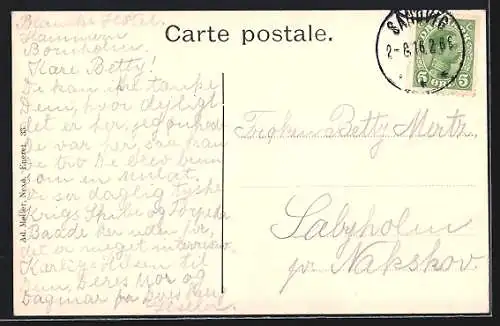 Hammern
Bornholm.
Kære Betty!
De kan ikke tænke
Dem, hvor dejligt
det er her, jeg ønskede
De var her, saa kan
De tro De blev brun
som en mulat.
Vi ser daglig tyske
Krigs Skibe og Torpedo
Baade her uden for,
det er meget
Kærlig Hilsen til
Dem, Deres Mor og
Dagmar fra Deres
Ad. Møller, Nexø. Eneret. 33.
Carte postale.
SANDVIG
2-8.16.
5 ØRE 5
Frøken Betty Mertz,
Sabyholm
pr. Nakskov.